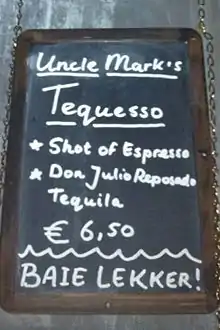 Uncle Mark's
Tequesso
★ Shot of Espresso
★ Don Julio Reposado
Tequila
€ 6,50
BAIE LEKKER!